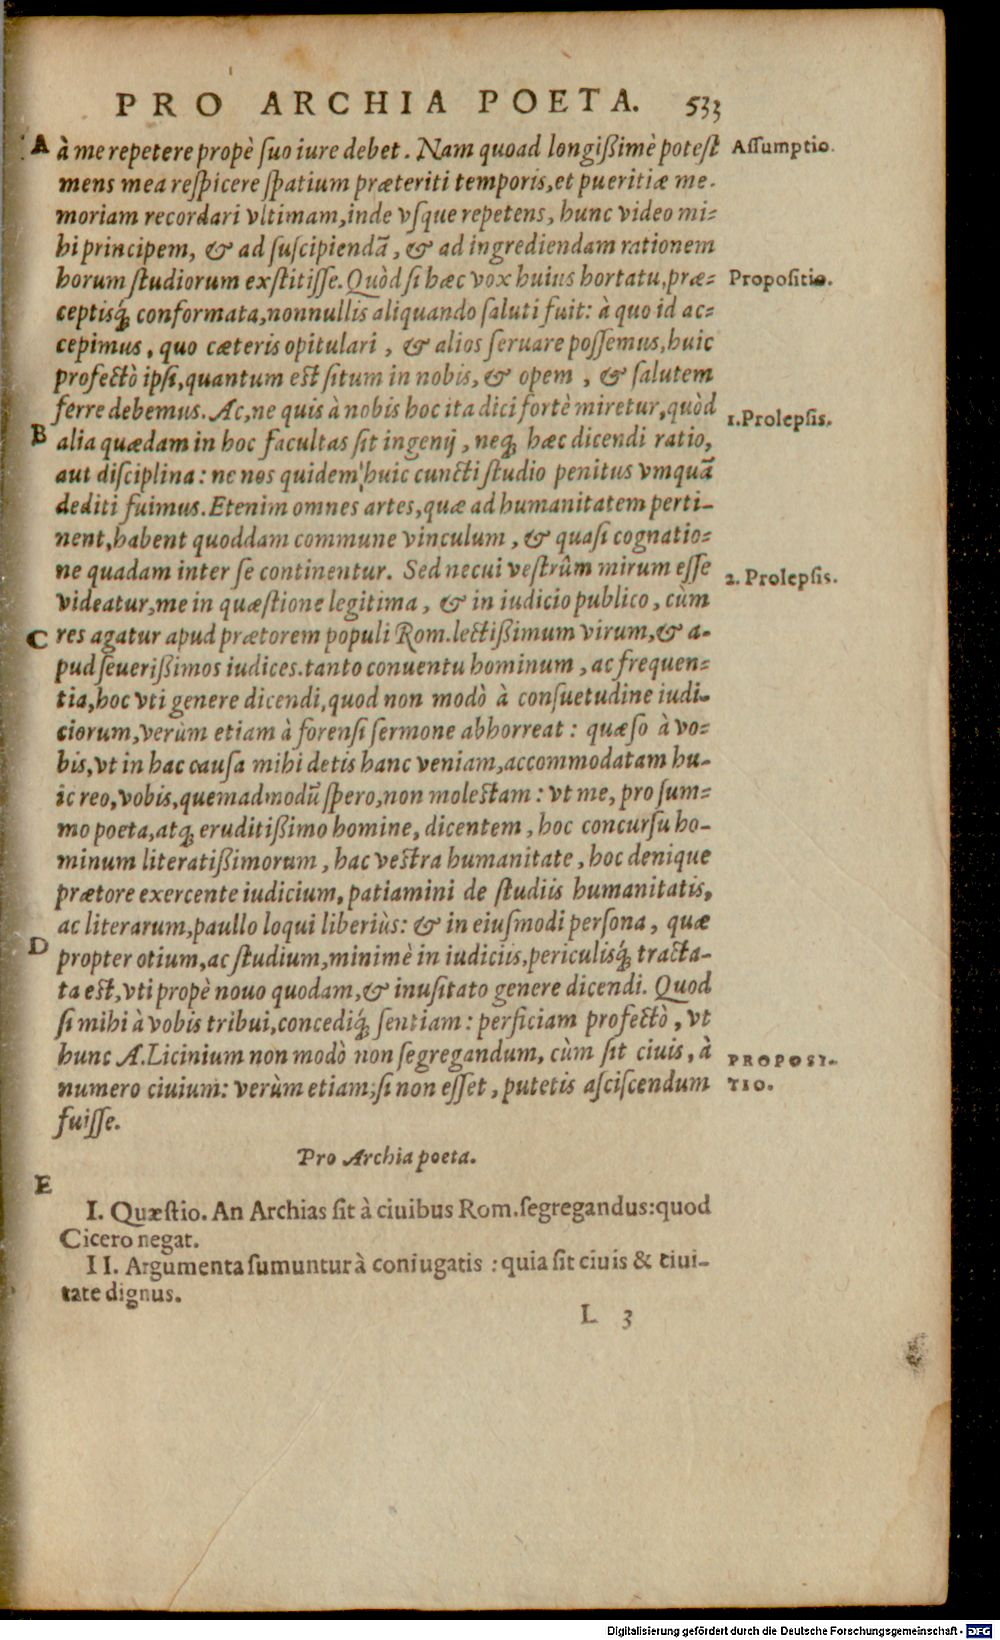 PRO ARCHIA POETA. 533
A à me repetere propè ſuo iure debet. Nam quoad longißimè poteſt Aſſumptio.
mens mea reſpicere ſpatium præteriti temporis,et pueritiæ me-
moriam recordari vltimam,inde vſque repetens, hunc video mi-
hi principem, & ad ſuſcipiendã, & ad ingrediendam rationem
horum ſtudiorum exſtitiſſe. Quòd ſi hæc vox huius hortatu,præ- Propoſitio.
ceptisq́; conformata,nonnullis aliquando ſaluti fuit: à quo id ac-
cepimus, quo cæteris opitulari, & alios ſeruare poſſemus,huic
profectò ipſi,quantum eſt ſitum in nobis, & opem, & ſalutem
ferre debemus. Ac,ne quis à nobis hoc ita dici fortè miretur,quòd 1.Prolepſis.
B alia quædam in hoc facultas ſit ingenij, neq; hæc dicendi ratio,
aut diſciplina: ne nos quidem huic cuncti ſtudio penitus vmquã
dediti fuimus. Etenim omnes artes,quæ ad humanitatem perti-
nent,habent quoddam commune vinculum, & quaſi cognatio-
ne quadam inter ſe continentur. Sed ne cui veſtrûm mirum eſſe 2. Prolepſis.
videatur,me in quæſtione legitima, & in iudicio publico, cùm
C res agatur apud prætorem populi Rom.lectißimum virum,& a-
pud ſeuerißimos iudices.tanto conuentu hominum, ac frequen-
tia,hoc vti genere dicendi,quod non modò à conſuetudine iudi-
ciorum,verùm etiam à forenſi ſermone abhorreat: quæſo à vo-
bis,vt in hac cauſa mihi detis hanc veniam,accommodatam hu-
ic reo,vobis,quemadmodũ ſpero,non moleſtam: vt me, pro ſum-
mo poeta,atq; eruditißimo homine, dicentem, hoc concurſu ho-
minum literatißimorum, hac veſtra humanitate, hoc denique
prætore exercente iudicium, patiamini de ſtudiis humanitatis,
ac literarum,paullo loqui liberiùs: & in eiuſmodi perſona, quæ
D propter otium,ac ſtudium,minimè in iudiciis,periculisq́; tracta-
ta eſt,vti propè nouo quodam,& inuſitato genere dicendi. Quod
ſi mihi à vobis tribui,concediq́; ſentiam: perficiam profectò, vt
hunc A.Licinium non modò non ſegregandum, cùm ſit ciuis, à PROPOSI-
numero ciuium: verùm etiam,ſi non eſſet, putetis aſciſcendum TIO.
fuiſſe.
Pro Archia poeta.
E
I. Quæſtio. An Archias ſit à ciuibus Rom.ſegregandus:quod
Cicero negat.
II. Argumenta ſumuntur à coniugatis: quia ſit ciuis & ciui-
tate dignus.
L 3
Digitalisierung gefördert durch die Deutsche Forschungsgemeinschaft - DFG